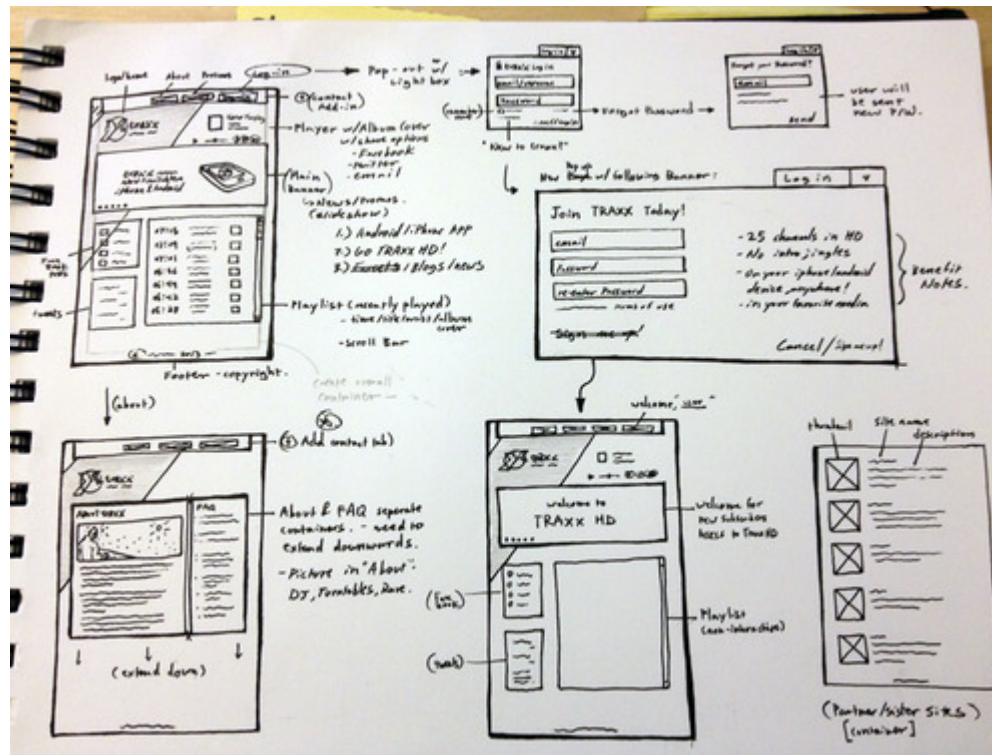 Logo/home
About
Partners
Log-in
Pop-out w/
Light box
Contact
Add-in
TRAXX
Player w/Album Cover
w/share options
- Facebook
- twitter
- email
(Main
Banner)
News/Promos.
(slideshow)
1.) Android/iPhone APP
2.) Go TRAXX HD!
3.) Events/Blogs/news
Playlist (recently played)
- scroll Bar
tweets
Footer - copyright.
create overall
container
TRAXX Login
email/username
Password
Forgot Password
"New to traxx?"
Forgot your Password?
email
send
user will
be sent
new P/W.
New
Pop up
w/ following Banner:
Log in
Join TRAXX Today!
email
Password
re-enter Password
terms of use
Sign me up!
- 25 channels in HD
- No intro jingles
- On your iphone/android
device, anywhere!
- in your favorite media
Benefit
Notes.
Cancel/Sign me up!
(about)
Add contact tab)
TRAXX
About TRAXX
FAQ
About & FAQ seperate
containers. - need to
extend downwards.
- Picture in "About":
DJ, Turntables, Rave.
(extend down)
welcome, "user"
TRAXX
welcome to
TRAXX HD
welcome for
new subscribers
Playlist
(tweets)
thumbnail
site name
description
(Partner/sister sites)
[container]